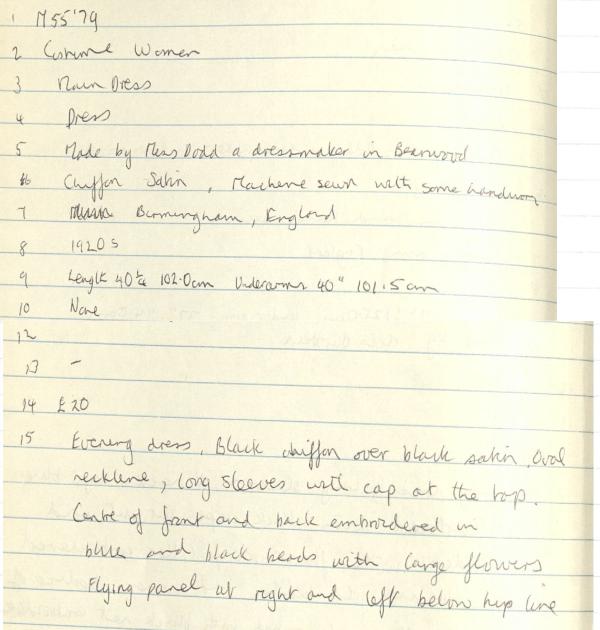 1 M55'79
2 Costume Women
3 Main Dress
4 Dress
5 Made by Miss Dodd a dressmaker in Bearwood
6 Chiffon Satin, Machine sewn with some handwork
7 Birmingham, England
8 1920s
9 Length 40¼ 102.0cm Underarms 40" 101.5cm
10 None
12
13 -
14 £20
15 Evening dress. Black chiffon over black satin. Oval
neckline, long sleeves with cap at the top.
Centre of front and back embroidered in
blue and black beads with large flowers
Flying panel at right and left below hip line